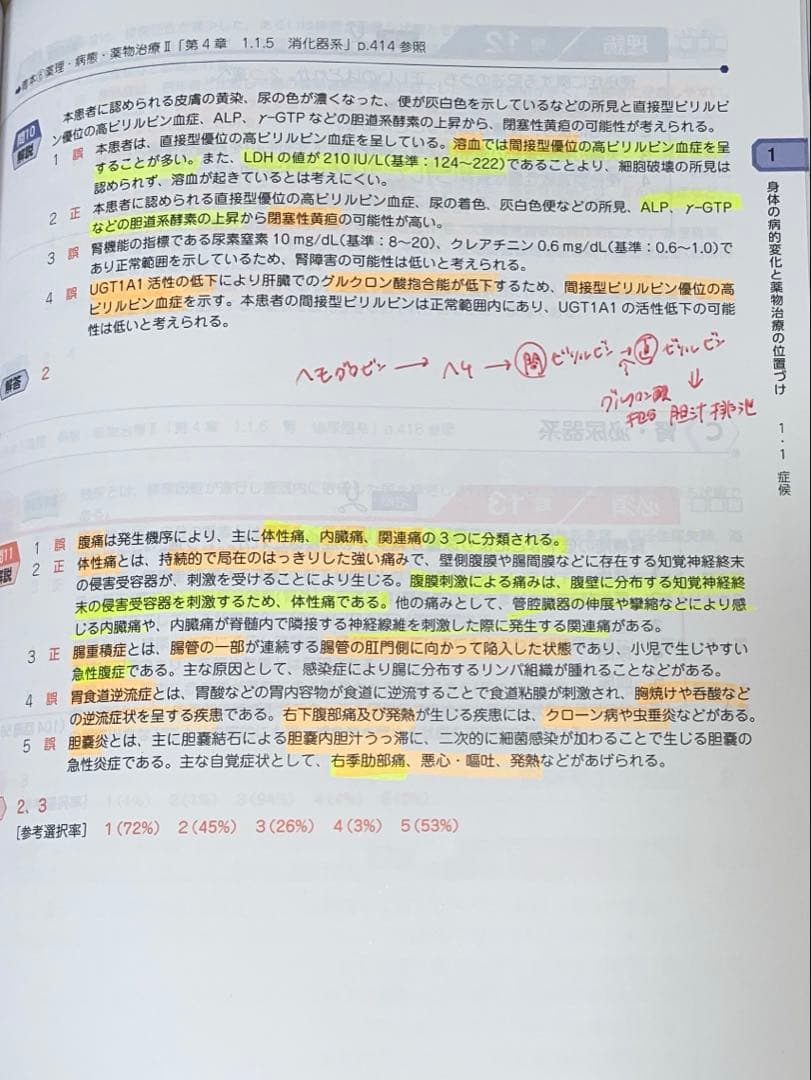 青本⑥薬理・病態・薬物治療Ⅱ「第4章 1.1.5 消化器系」p.414 参照
問10
解説
本患者に認められる皮膚の黄染、尿の色が濃くなった、便が灰白色を示しているなどの所見と直接型ビリルビ
ン優位の高ビリルビン血症、ALP、γ-GTP などの胆道系酵素の上昇から、閉塞性黄疸の可能性が考えられる。
1 誤 本患者は、直接型優位の高ビリルビン血症を呈している。溶血では間接型優位の高ビリルビン血症を呈
することが多い。また、LDH の値が 210 IU/L(基準：124~222)であることより、細胞破壊の所見は
認められず、溶血が起きているとは考えにくい。
2 正 本患者に認められる直接型優位の高ビリルビン血症、尿の着色、灰白色便などの所見、ALP、γ-GTP
などの胆道系酵素の上昇から閉塞性黄疸の可能性が高い。
3 誤 腎機能の指標である尿素窒素 10 mg/dL(基準：8~20)、クレアチニン 0.6 mg/dL(基準：0.6~1.0)で
あり正常範囲を示しているため、腎障害の可能性は低いと考えられる。
4 誤 UGT1A1 活性の低下により肝臓でのグルクロン酸抱合能が低下するため、間接型ビリルビン優位の高
ビリルビン血症を示す。本患者の間接型ビリルビンは正常範囲内にあり、UGT1A1 の活性低下の可能
性は低いと考えられる。
解答 2
ヘモグロビン → ヘム → 間 ビリルビン → 直 ビリルビン
↑ ⇓
グルクロン酸
抱合 胆汁排泄
1
身体の病的変化と薬物治療の位置づけ
1・1 症候
問11
解説
1 誤 腹痛は発生機序により、主に体性痛、内臓痛、関連痛の3つに分類される。
2 正 体性痛とは、持続的で局在のはっきりした強い痛みで、壁側腹膜や腸間膜などに存在する知覚神経終末
の侵害受容器が、刺激を受けることにより生じる。腹膜刺激による痛みは、腹壁に分布する知覚神経終
末の侵害受容器を刺激するため、体性痛である。他の痛みとして、管腔臓器の伸展や攣縮などにより感
じる内臓痛や、内臓痛が脊髄内で隣接する神経線維を刺激した際に発生する関連痛がある。
3 正 腸重積症とは、腸管の一部が連続する腸管の肛門側に向かって陥入した状態であり、小児で生じやすい
急性腹症である。主な原因として、感染症により腸に分布するリンパ組織が腫れることなどがある。
4 誤 胃食道逆流症とは、胃酸などの胃内容物が食道に逆流することで食道粘膜が刺激され、胸焼けや呑酸など
の逆流症状を呈する疾患である。右下腹部痛及び発熱が生じる疾患には、クローン病や虫垂炎などがある。
5 誤 胆嚢炎とは、主に胆嚢結石による胆嚢内胆汁うっ滞に、二次的に細菌感染が加わることで生じる胆嚢の
急性炎症である。主な自覚症状として、右季肋部痛、悪心・嘔吐、発熱などがあげられる。
2、3
[参考選択率] 1(72%) 2(45%) 3(26%) 4(3%) 5(53%)